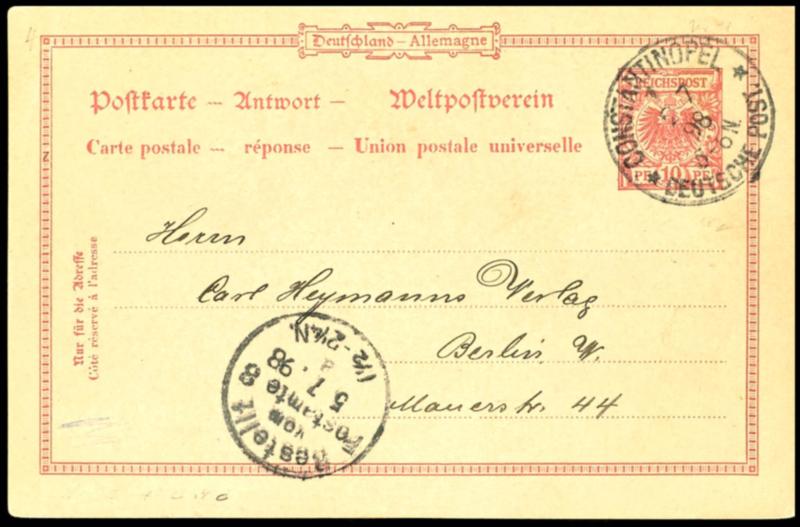 Deutschland – Allemagne
Postkarte — Antwort — Weltpostverein
Carte postale — réponse — Union postale universelle
REICHSPOST
10
CONSTANTINOPEL
* DEUTSCHE POST *
98
Nur für die Adresse
Côté réservé à l'adresse
Herrn
Carl Heymanns Verlag
Berlin W.
Mauerstr. 44
Bestellt
vom
Postamte
5 7 98
1½-2½N.